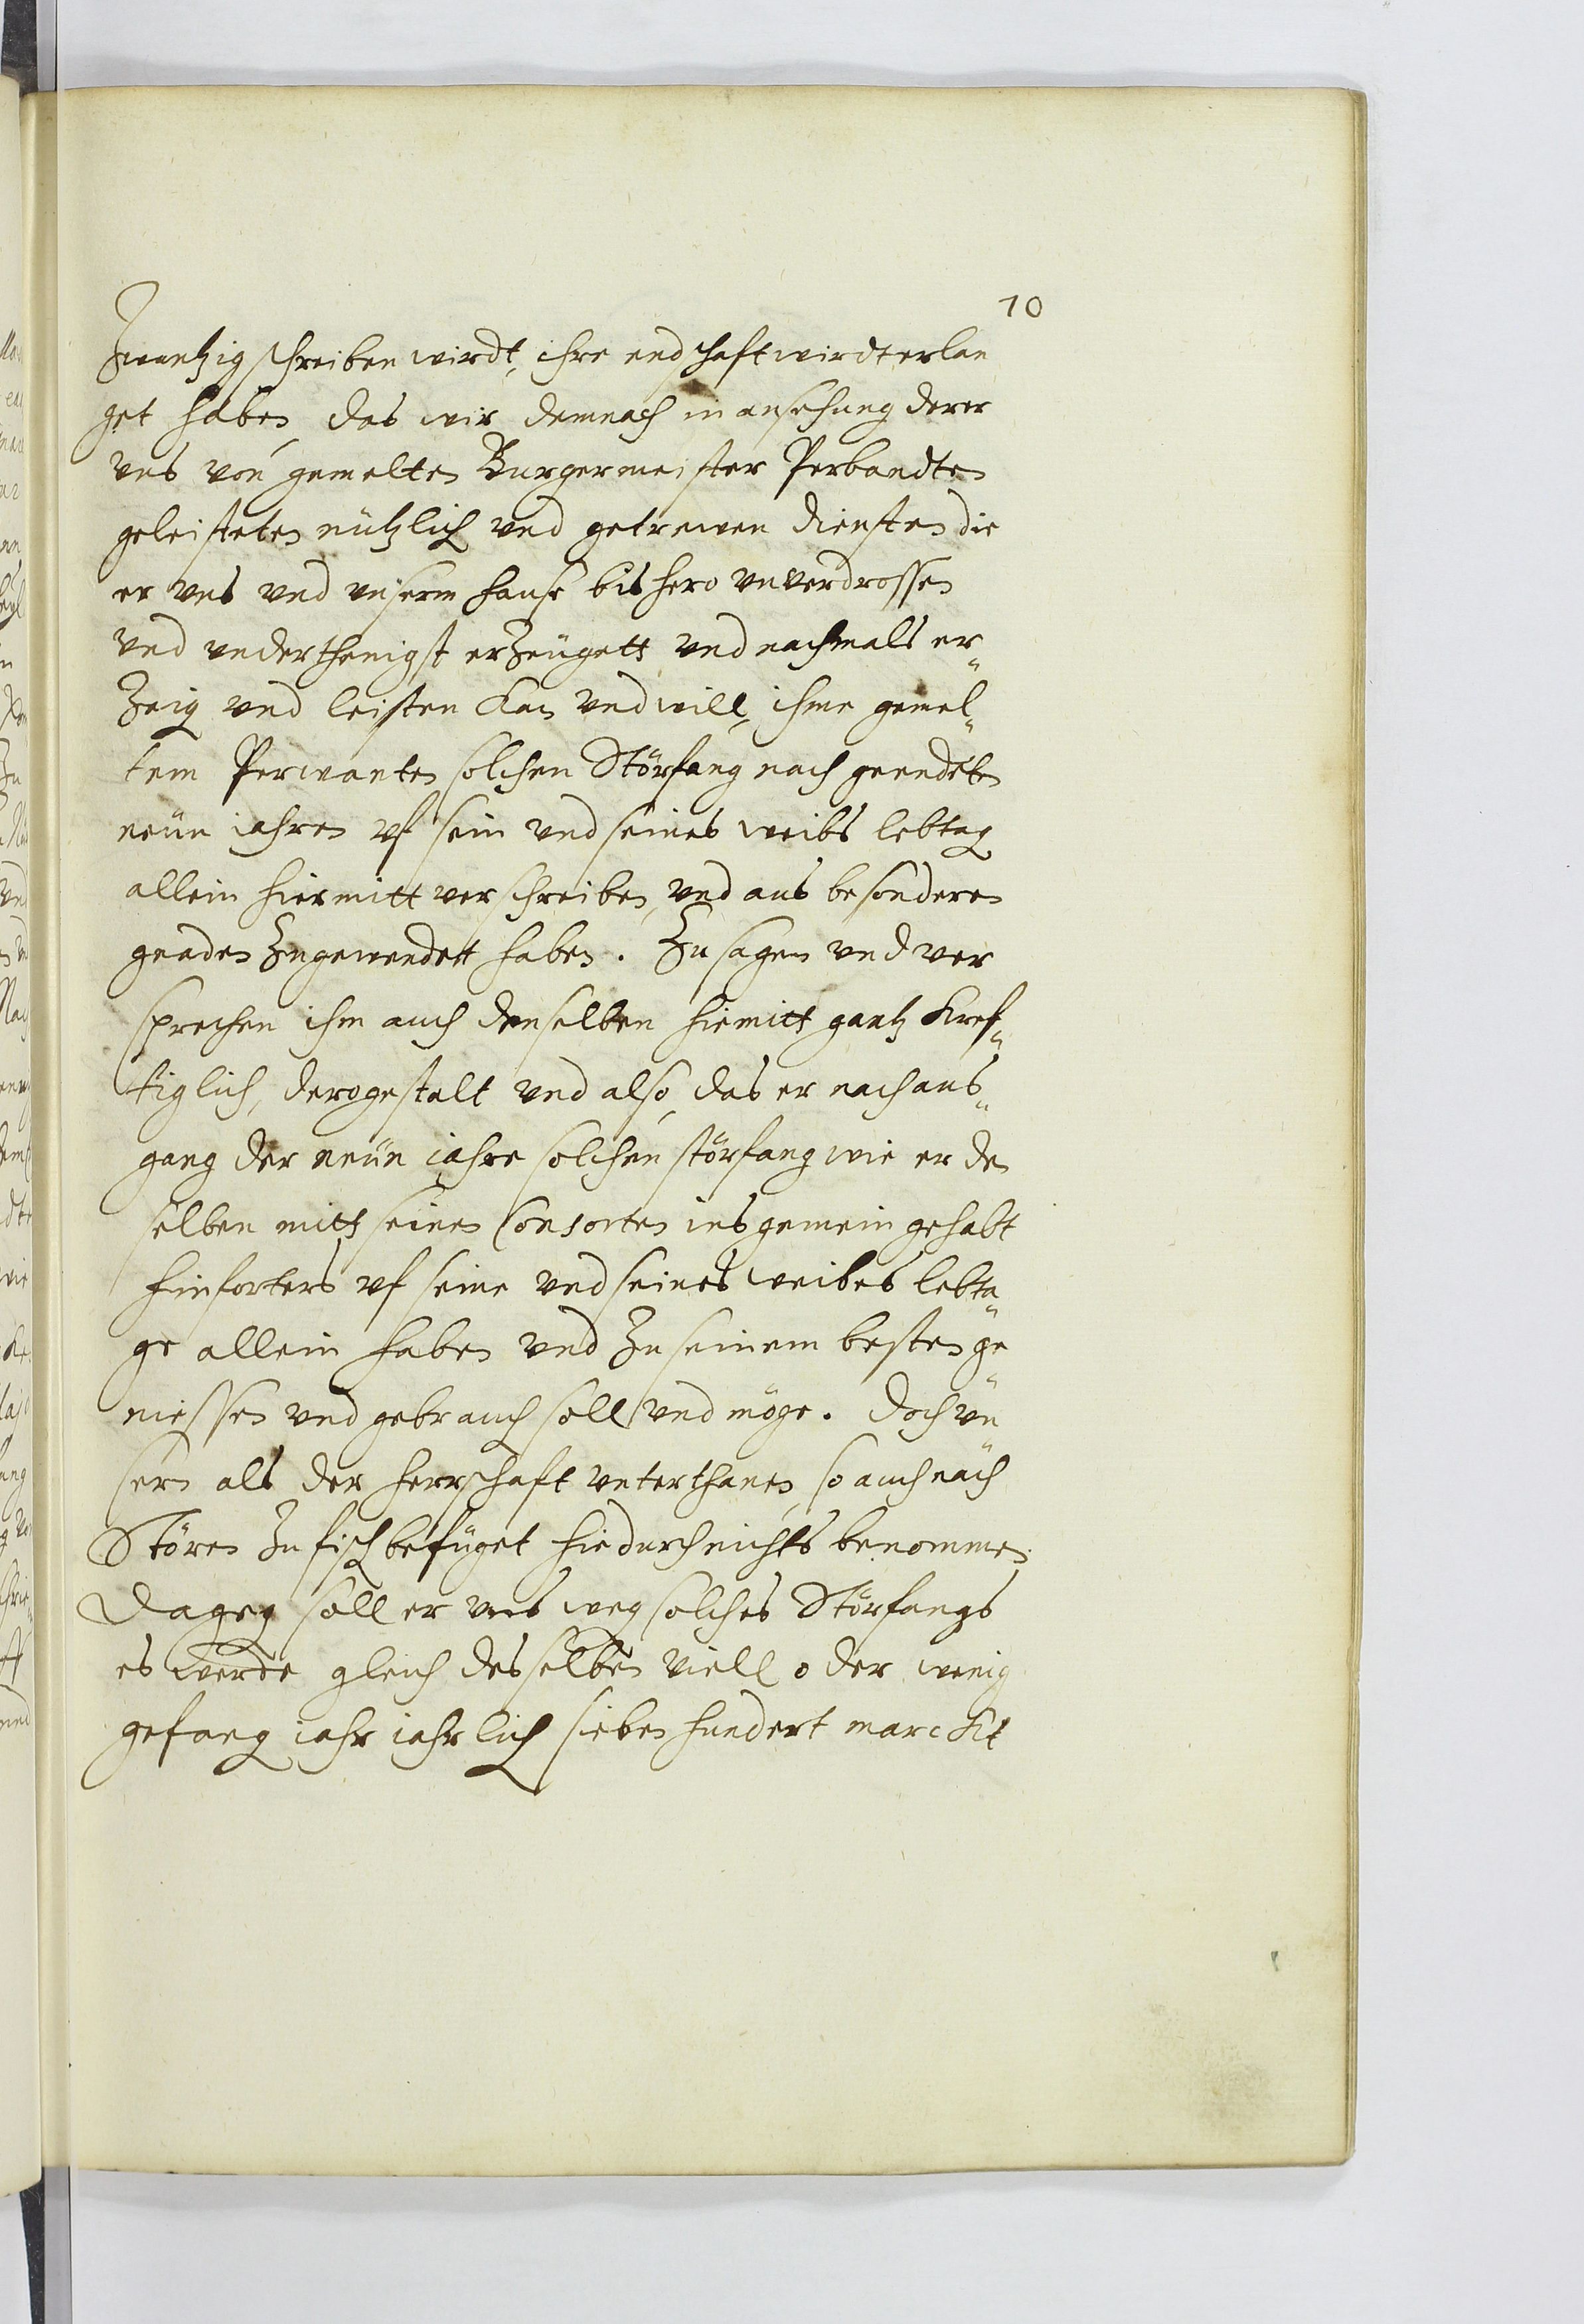 10
Zwantzig schreiben wirdt, ihre endschaft wirdt erlan
get haben das wir demnach in ansehung derer
vns von gemelten Burgermeister Perbandten
geleisteten nützlich vnd getrewen diensten die
er vns vnd vnserm hause bishero vnverdrossen
vnd vnderthenigst erzeugett vnd nachmals er-
zeig vnd leisten kan vnd will, ihme gemel-
tem Perwanten solchen Störfang nach geendeten
neün iahren vf sein vnd seines weibs lebtag
allein hiermitt verschreiben, vnd aus besonderen
gnaden Zugewendett haben. Zusagen vnd ver
sprechen ihm auch denselben hiemitt gantz kref-
tiglich, derogestalt vnd also, das er nach aus-
gang der neün iahre solchen störfang wie er den
selben mitt seinen Consorten ins gemein gehabt
hinforters vf seine vnd seines weibes lebta-
ge allein haben vnd Zu seinem besten ge-
niessen vnd gebrauch soll vnd möge. doch vn-
sern als der herrschaft vnterthanen, so auch nach
Stören Zu fisch befüget hiedurch nichts benommen.
Dageg soll er vns weg solches Störfangs
es werde gleich desselben viell oder wenig
gefang iahr iahrlich sieben hundert marckk